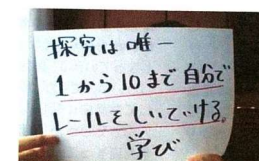 探究は唯一
1から10まで自分で
レールをしいていける。
学び